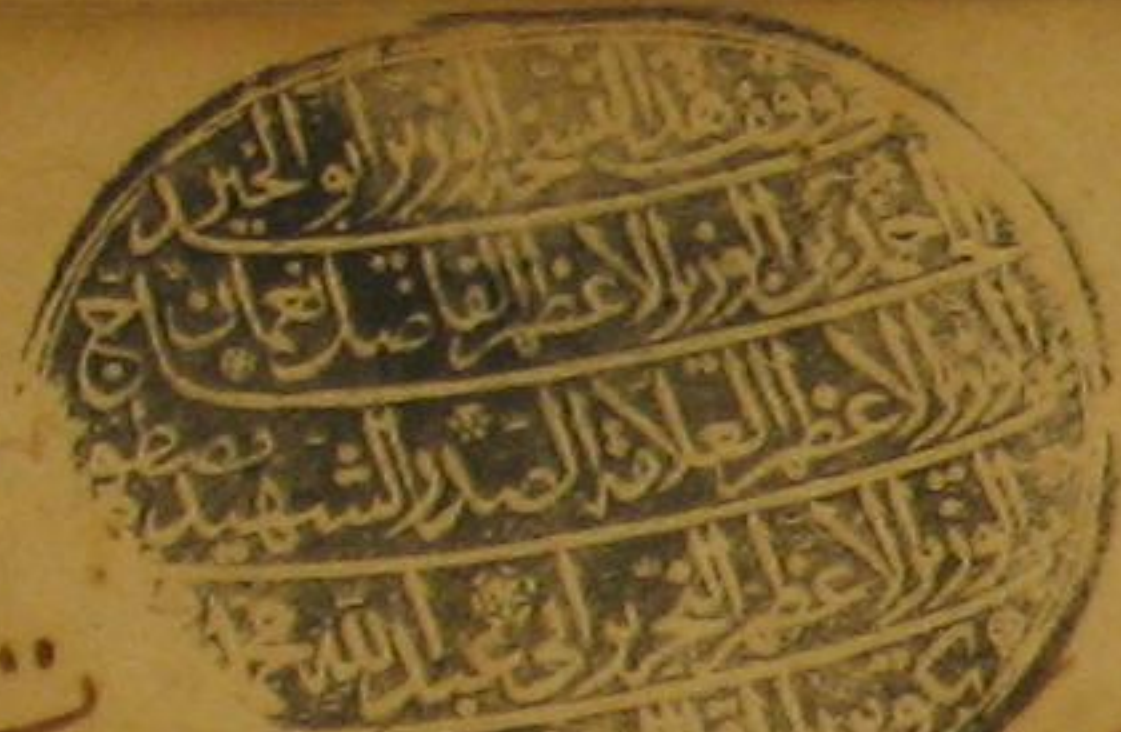 وقف هذه النسخة الوزير ابو الخير
احمد بن الوزير الاعظم الفاضل نعمان ابن
الوزير الاعظم العلامة الصدر الشهيد مصطفى
الوزير الاعظم النحرير ابي عبد الله محمد
كوپريلى